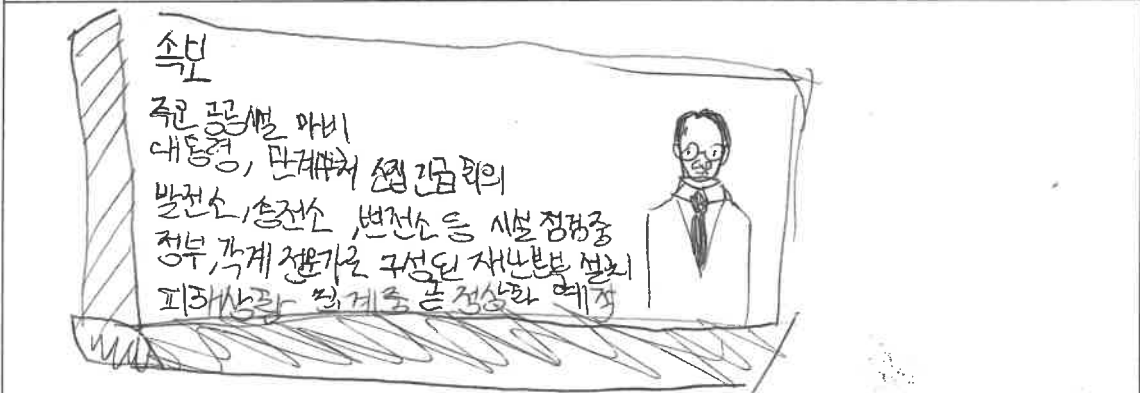 속보
주요 공공시설 마비
대통령, 관계부처 소집 긴급 회의
발전소, 송전소, 변전소 등 시설 점검중
정부, 각계 전문가로 구성된 재난본부 설치
피해상황 집계중 곧 정상화 예정